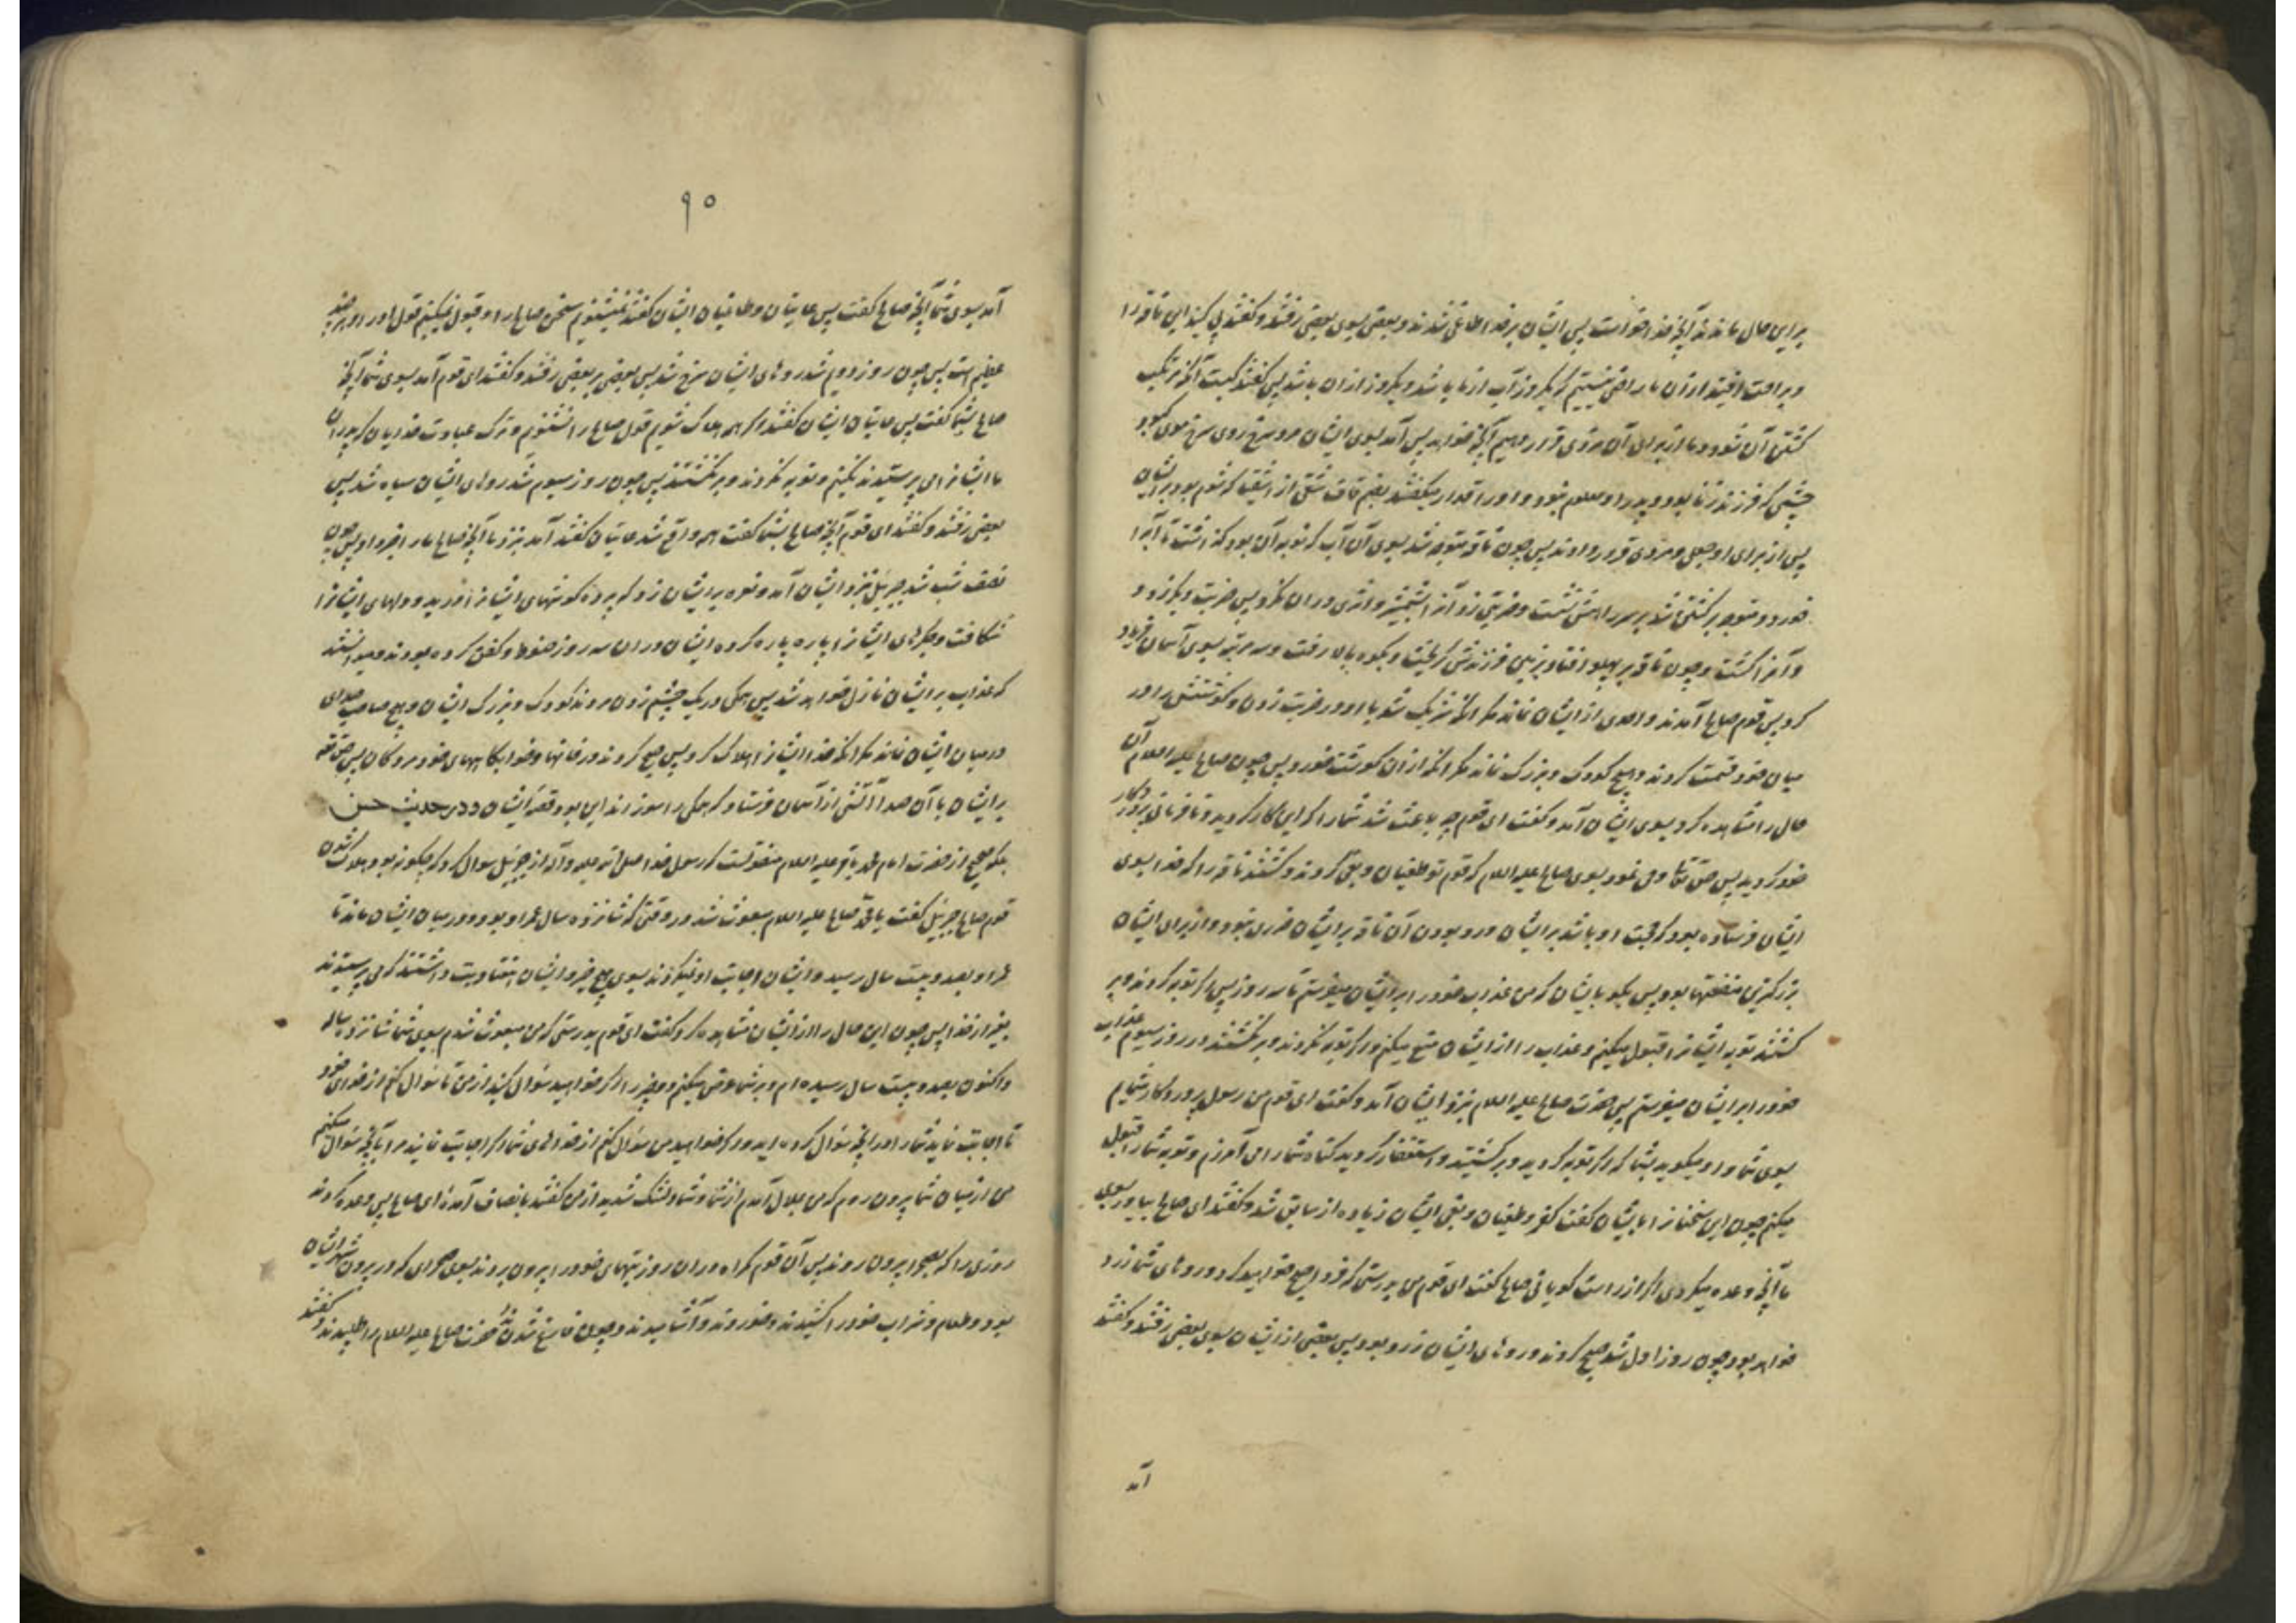 بر این حال ماندند آنچه خدا خواست پس ایشان بر خدا طاغی شدند و بعضی بسوی بعضی رفتند و گفتند پی کنید این ناقه را
و براحت افتید از آن ما راضی نیستیم که یکروز آب از ما باشد و یکروز از آن باشد پس گفتند کیست آنکه مرتکب
کشتن آن شود و ما از برای آن مزدی قرار دهیم آنچه خواهد پس آمد بسوی ایشان مرد سرخ روی سرخ موی کبود
چشمی که فرزند زنا بود و پدر او معلوم نبود و او را قدار میگفتند بضم قاف شقی از اشقیا که شوم بود بر ایشان
پس از برای او جعلی و مزدی قرار دادند پس چون ناقه متوجه شد بسوی آن آب که نوبه آن بود گذاشت تا آب را
خورد و متوجه برگشتن شد بر سر راهش نشست و ضربتی زد آنرا بشمشیر و اثری در آن نکرد پس ضربت دیگر زد و
و آنرا کشت و چون ناقه بر پهلو افتاد بزمین فرزندش گریخت و بکوه بالا رفت و سه مرتبه بسوی آسمان فریاد
کرد پس قوم صالح آمدند و احدی از ایشان نماند مگر آنکه شریک شد با او در ضربت زدن و گوشتش را در
میان خود قسمت کردند و هیچ کودک و بزرگ نماند مگر آنکه از آن گوشت خورد پس چون صالح علیه السلام آن
حال را مشاهده کرد بسوی ایشان آمد و گفت ای قوم چه باعث شد شما را که این کار کردید و نافرمانی پروردگار
خود کردید پس حق تعالی وحی نمود بسوی صالح علیه السلام که قوم تو طغیان و بغی کردند و کشتند ناقه را که خدا بسوی
ایشان فرستاده بود که حجت او باشد بر ایشان و در بودن آن ناقه بر ایشان ضرری نبود و از برای ایشان
بزرگترین منفعتها بود پس بگو بایشان که من عذاب خود را بر ایشان میفرستم تا سه روز پس اگر توبه کردند و بر
گشتند توبه ایشانرا قبول میکنم و عذاب را از ایشان منع میکنم و اگر توبه نکردند و بر نگشتند در روز سیوم عذاب
خود را بر ایشان میفرستم پس حضرت صالح علیه السلام بنزد ایشان آمد و گفت ای قوم من رسول پروردگار شمایم
بسوی شما و او میگوید بشما که اگر توبه کردید و برگشتید و استغفار کردید گناه شما را می آمرزم و توبه شما را قبول
میکنم چون این سخنانرا بایشان گفت کفر و طغیان و بغی ایشان زیاده از سابق شد و گفتند ای صالح بیاور بسوی
ما آنچه وعده میکردی اگر از راست گویانی صالح گفت ای قوم من بدرستی که فردا صبح خواهید کرد و روهای شما زرد
خواهد بود چون روز اول شد صبح کردند و روهای ایشان زرد بود پس بعضی از ایشان بسوی بعضی رفتند و گفتند
آمد
۹۰
آمد بسوی شما آنچه صالح گفت پس عاتیان و طاغیان ایشان گفتند نمیشنویم سخن صالح را و قبول نمیکنیم قول او را هر چند
عظیم است پس چون روز دویم شد روهای ایشان سرخ شد پس بعضی بر بعضی رفتند و گفتند ای قوم آمد بسوی شما آنچه
صالح بشما گفت پس عاتیان ایشان گفتند اگر همه هلاک شویم قول صالح را نشنویم و ترک عبادت خدایان که پدران
ما ایشانرا می پرستیدند نکنیم و توبه نکردند و بر نگشتند پس چون روز سیوم شد روهای ایشان سیاه شد پس
بعضی رفتند و گفتند ای قوم آنچه صالح بشما گفت همه واقع شد عاتیان گفتند آمد بنزد ما آنچه صالح ما را خبر داد پس چون
نصف شب شد جبرئیل بنزد ایشان آمد و نعره بر ایشان زد که پرده گوشهای ایشانرا درید و دلهای ایشانرا
شکافت و جگرهای ایشانرا پاره پاره کرد و ایشان در آن سه روز حنوط و کفن کرده بودند و میدانستند
که عذاب بر ایشان نازل خواهد شد پس همگی در یک چشم زدن مردند کودک و بزرگ ایشان و هیچ صاحب صدای
در میان ایشان نماند مگر آنکه خدا ایشانرا هلاک کرد پس صبح کردند در خانها و خوابگاههای خود مردگان پس حق تعالی
بر ایشان با آن صدا آتشی از آسمان فرستاد که همگی را سوزانید این بود قصه ایشان و در حدیث حسن
بلکه صحیح از حضرت امام محمد باقر علیه السلام منقولست که رسول خدا صلی الله علیه و آله از جبرئیل سوال کرد که چگونه بود هلاک شدن
قوم صالح جبرئیل گفت یا محمد صالح علیه السلام مبعوث شد در وقتی که شانزده سال عمر او بود و در میان ایشان ماند تا
عمر او بصد و بیست سال رسید و ایشان اجابت او نمیکردند بسوی هیچ خیر و ایشان هفتاد بت داشتند که می پرستیدند
بغیر از خدا پس چون این حال را از ایشان مشاهده کرد گفت ای قوم بدرستی که من مبعوث شدم بسوی شما شانزده ساله
و اکنون بصد و بیست سال رسیده ام و بر شما عرض میکنم دو چیز را اگر خواهید سئوال کنید از من تا سئوال کنم از خدای خود
تا اجابت نماید شما را در آنچه سئوال کرده اید و اگر خواهید من سئوال کنم از خداهای شما اگر اجابت نمایند مرا بآنچه سئوال میکنم
من از میان شما بیرون روم که من ملال آمدم از شما و شما دلتنگ شدید از من گفتند بانصاف آمده ای صالح پس وعده کردند
روزی را که بصحرا بیرون روند پس آن قوم گمراه در آن روز بتهای خود را بیرون بردند بسوی صحرای که در بیرون شهر ایشان
بود و طعام و شراب خود را کشیدند و خوردند و آشامیدند و چون فارغ شدند حضرت صالح علیه السلام را طلبیدند و گفتند